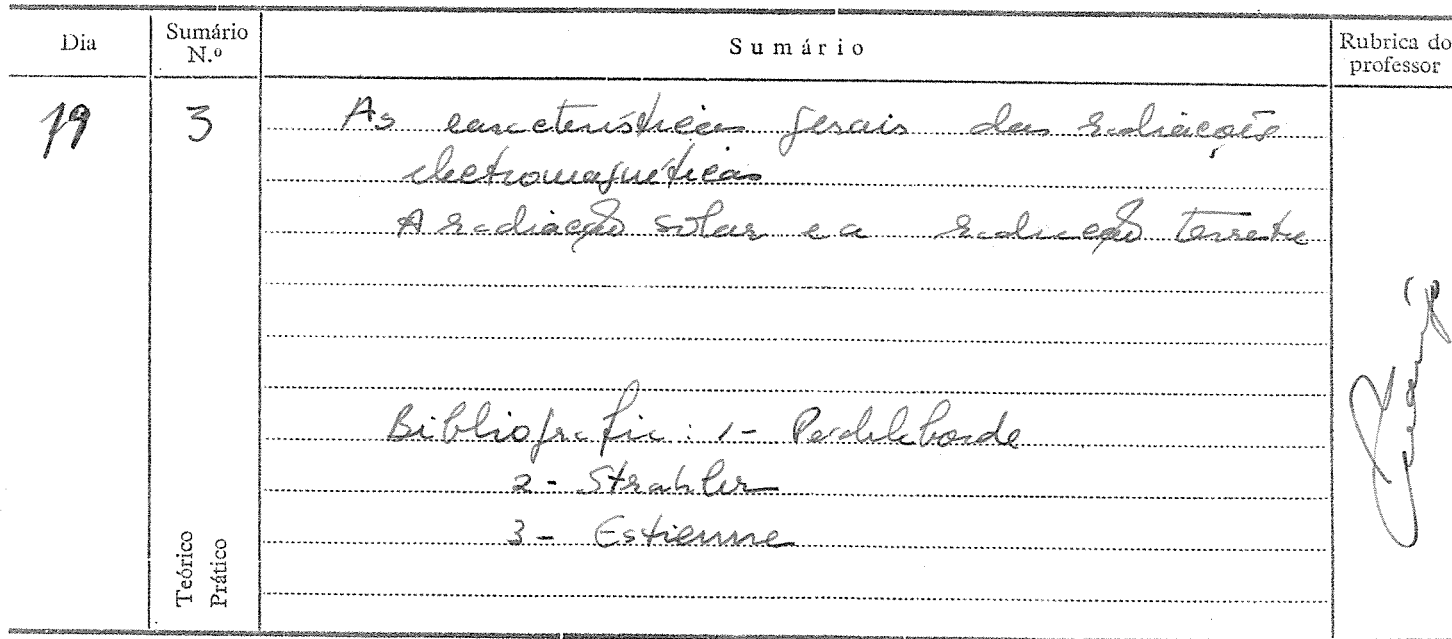 Dia
Sumário N.º
Sumário
Rubrica do professor
19
3
As características gerais das radiações
electromagnéticas
A radiação solar e a radiação terrestre
Bibliografia: 1- Pédelaborde
2- Strahler
3- Estienne
Teórico
Prático